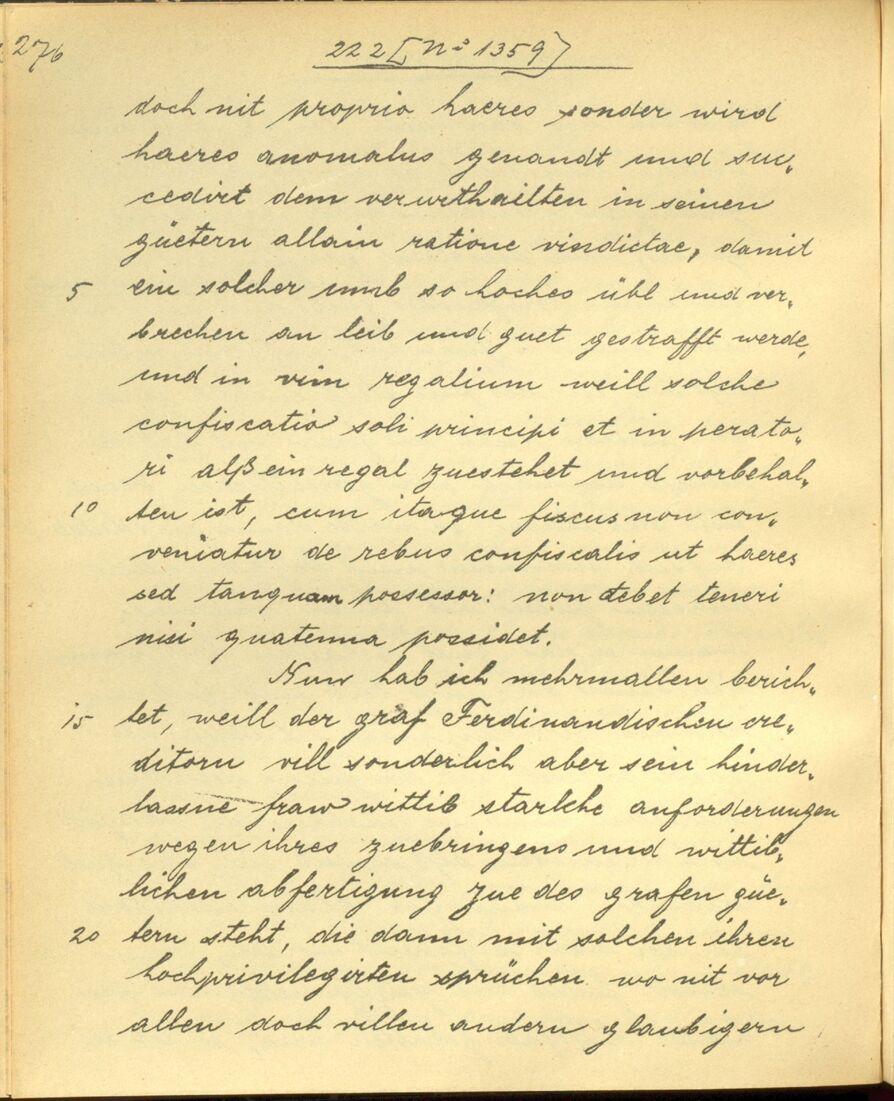 276
222 [Nº 1359]
doch nit proprio haeres sonder wird
haeres anomalus genandt und suc„
cedirt dem verurthailten in seinen
güetern allain ratione vindictae, damit
5 ein solcher umb so hoches übl und ver„
brechen an leib und guet gestrafft werde,
und in vim regalium weill solche
confiscatio soli principi et in perato„
ri alß ein regal zuestehet und vorbehal„
10 ten ist, cum itaque fiscus non con„
veniatur de rebus confiscalis ut haeres
sed tanquam possessor: non debet teneri
nisi quatenna possidet.
Nun hab ich mehrmallen berich„
15 tet, weill der graf Ferdinandischen cre„
ditorn vill sonderlich aber sein hinder„
lassne fraw wittib starkhe anforderungen
wegen ihres zuebringens und wittib„
lichen abfertigung zue des grafen güe„
20 tern steht, die dann mit solchen ihren
hochprivilegirten sprüchen wo nit vor
allen doch villen andern glaubigern